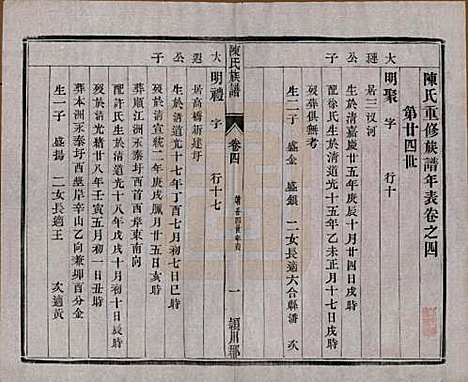 陳氏重修族譜年表卷之四
第廿四世
大 璉 公 子
明聚 字 行十
居三汊河
生於清嘉慶廿五年庚辰十月廿一日亥時
配徐氏生於清道光十五年乙未正月十七日戌時
歿葬俱無考
生二子 盛金 盛銀 二女長適六合縣潘 次
陳氏族譜
卷四
一
潁川郡
大 公 子
明禮 字 行十七
居高橋新建圩
生於清道光十七年丁酉七月初七日巳時
歿於清光緒十年庚戌風月廿五日亥時
葬順江洲永泰圩西首西岸東南向
配許氏生於清道光十八年戊戌十月初十日辰時
歿於清光緒廿八年壬寅五月初八日申時
葬本洲永泰圩西首西岸乙山兼卯酉分金
生一子 盛揚 二女長適王 次適黃